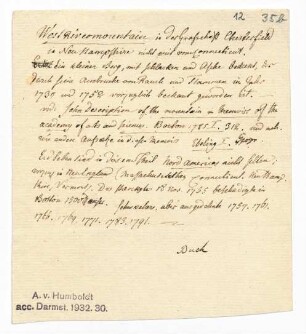 12 358
Westrivermountain in der Grafschaft Chesterfield
in New Hampshire nicht weit vom Connecticut.
Ein kleiner Berg, mit Schlacken und Asche bedeckt, der
durch sein Ausbruche von Rauch und Flammen im Jahr
1730 und 1752 vorzüglich bekannt geworden ist.
vid. John description of the mountain in memoirs of the
academy of arts and sciences. Boston 1785. I. 312. und
ein andrer Aufsatz in diesen memoirs Ebeling I.
Erdbeben sind in diesem Theil Nord America nicht selten
in New England (Massachusetts Connecticut, New Hamp
shire, Vermont. Das 18 Nov. 1755 beschädigte in
Boston 1500 Schwächer, aber ausgedehnte 1757. 1761.
1766. 1769. 1771. 1783. 1791. —
Buch
A. v. Humboldt
acc. Darmst. 1932. 30.